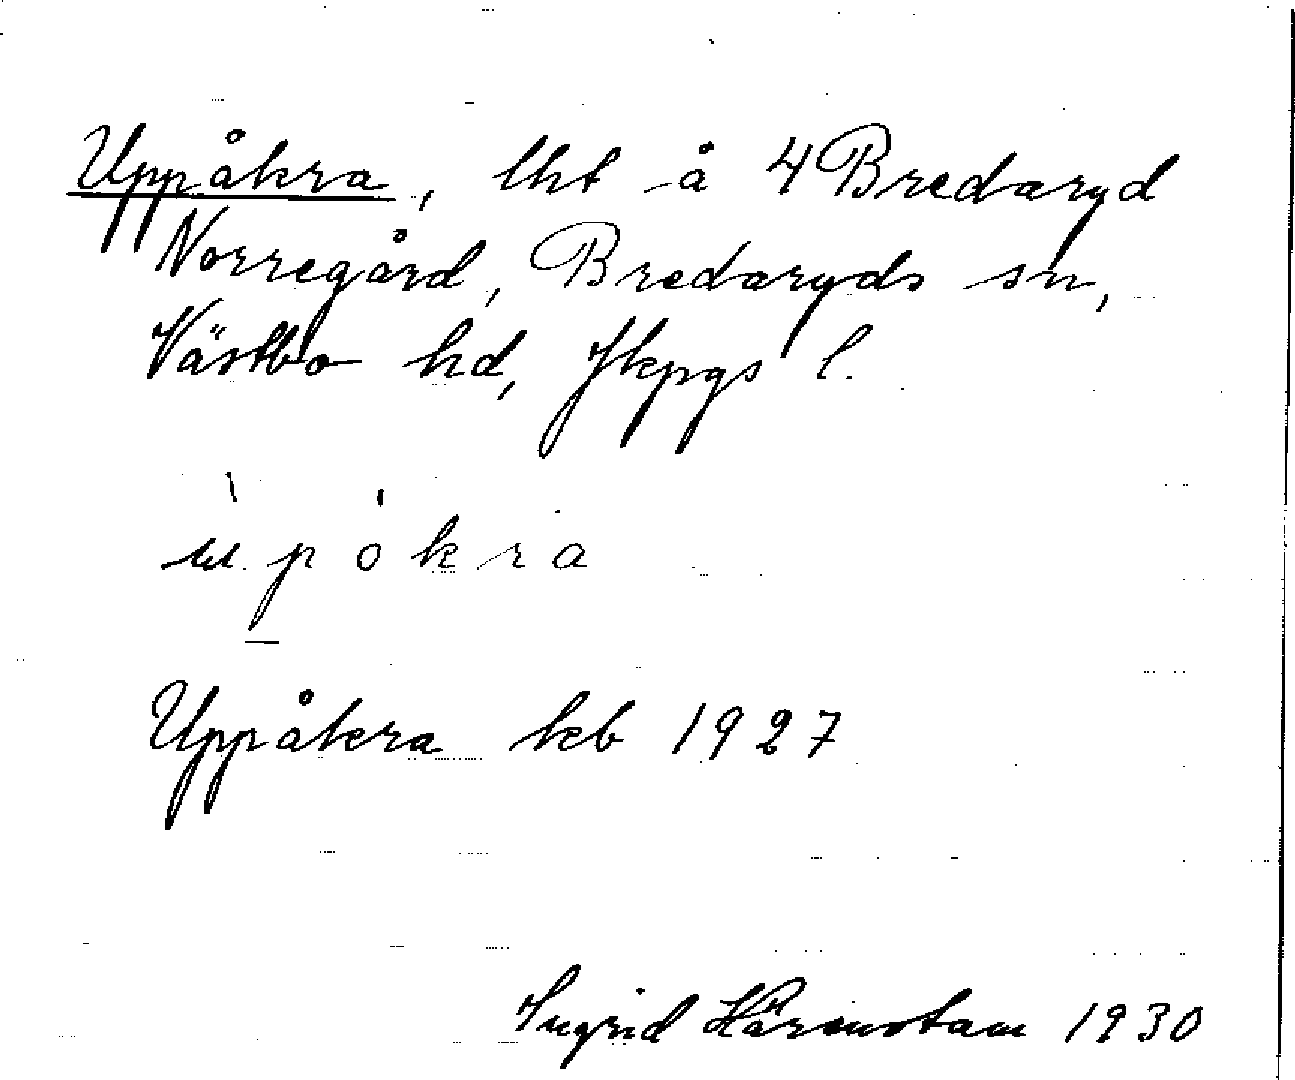 Uppåkra, lht å 4 Bredaryd
Norregård, Bredaryds sn,
Västbo hd, Jkpgs l.
ùpókra
Uppåkra kb 1927
Ingrid Härenstam 1930